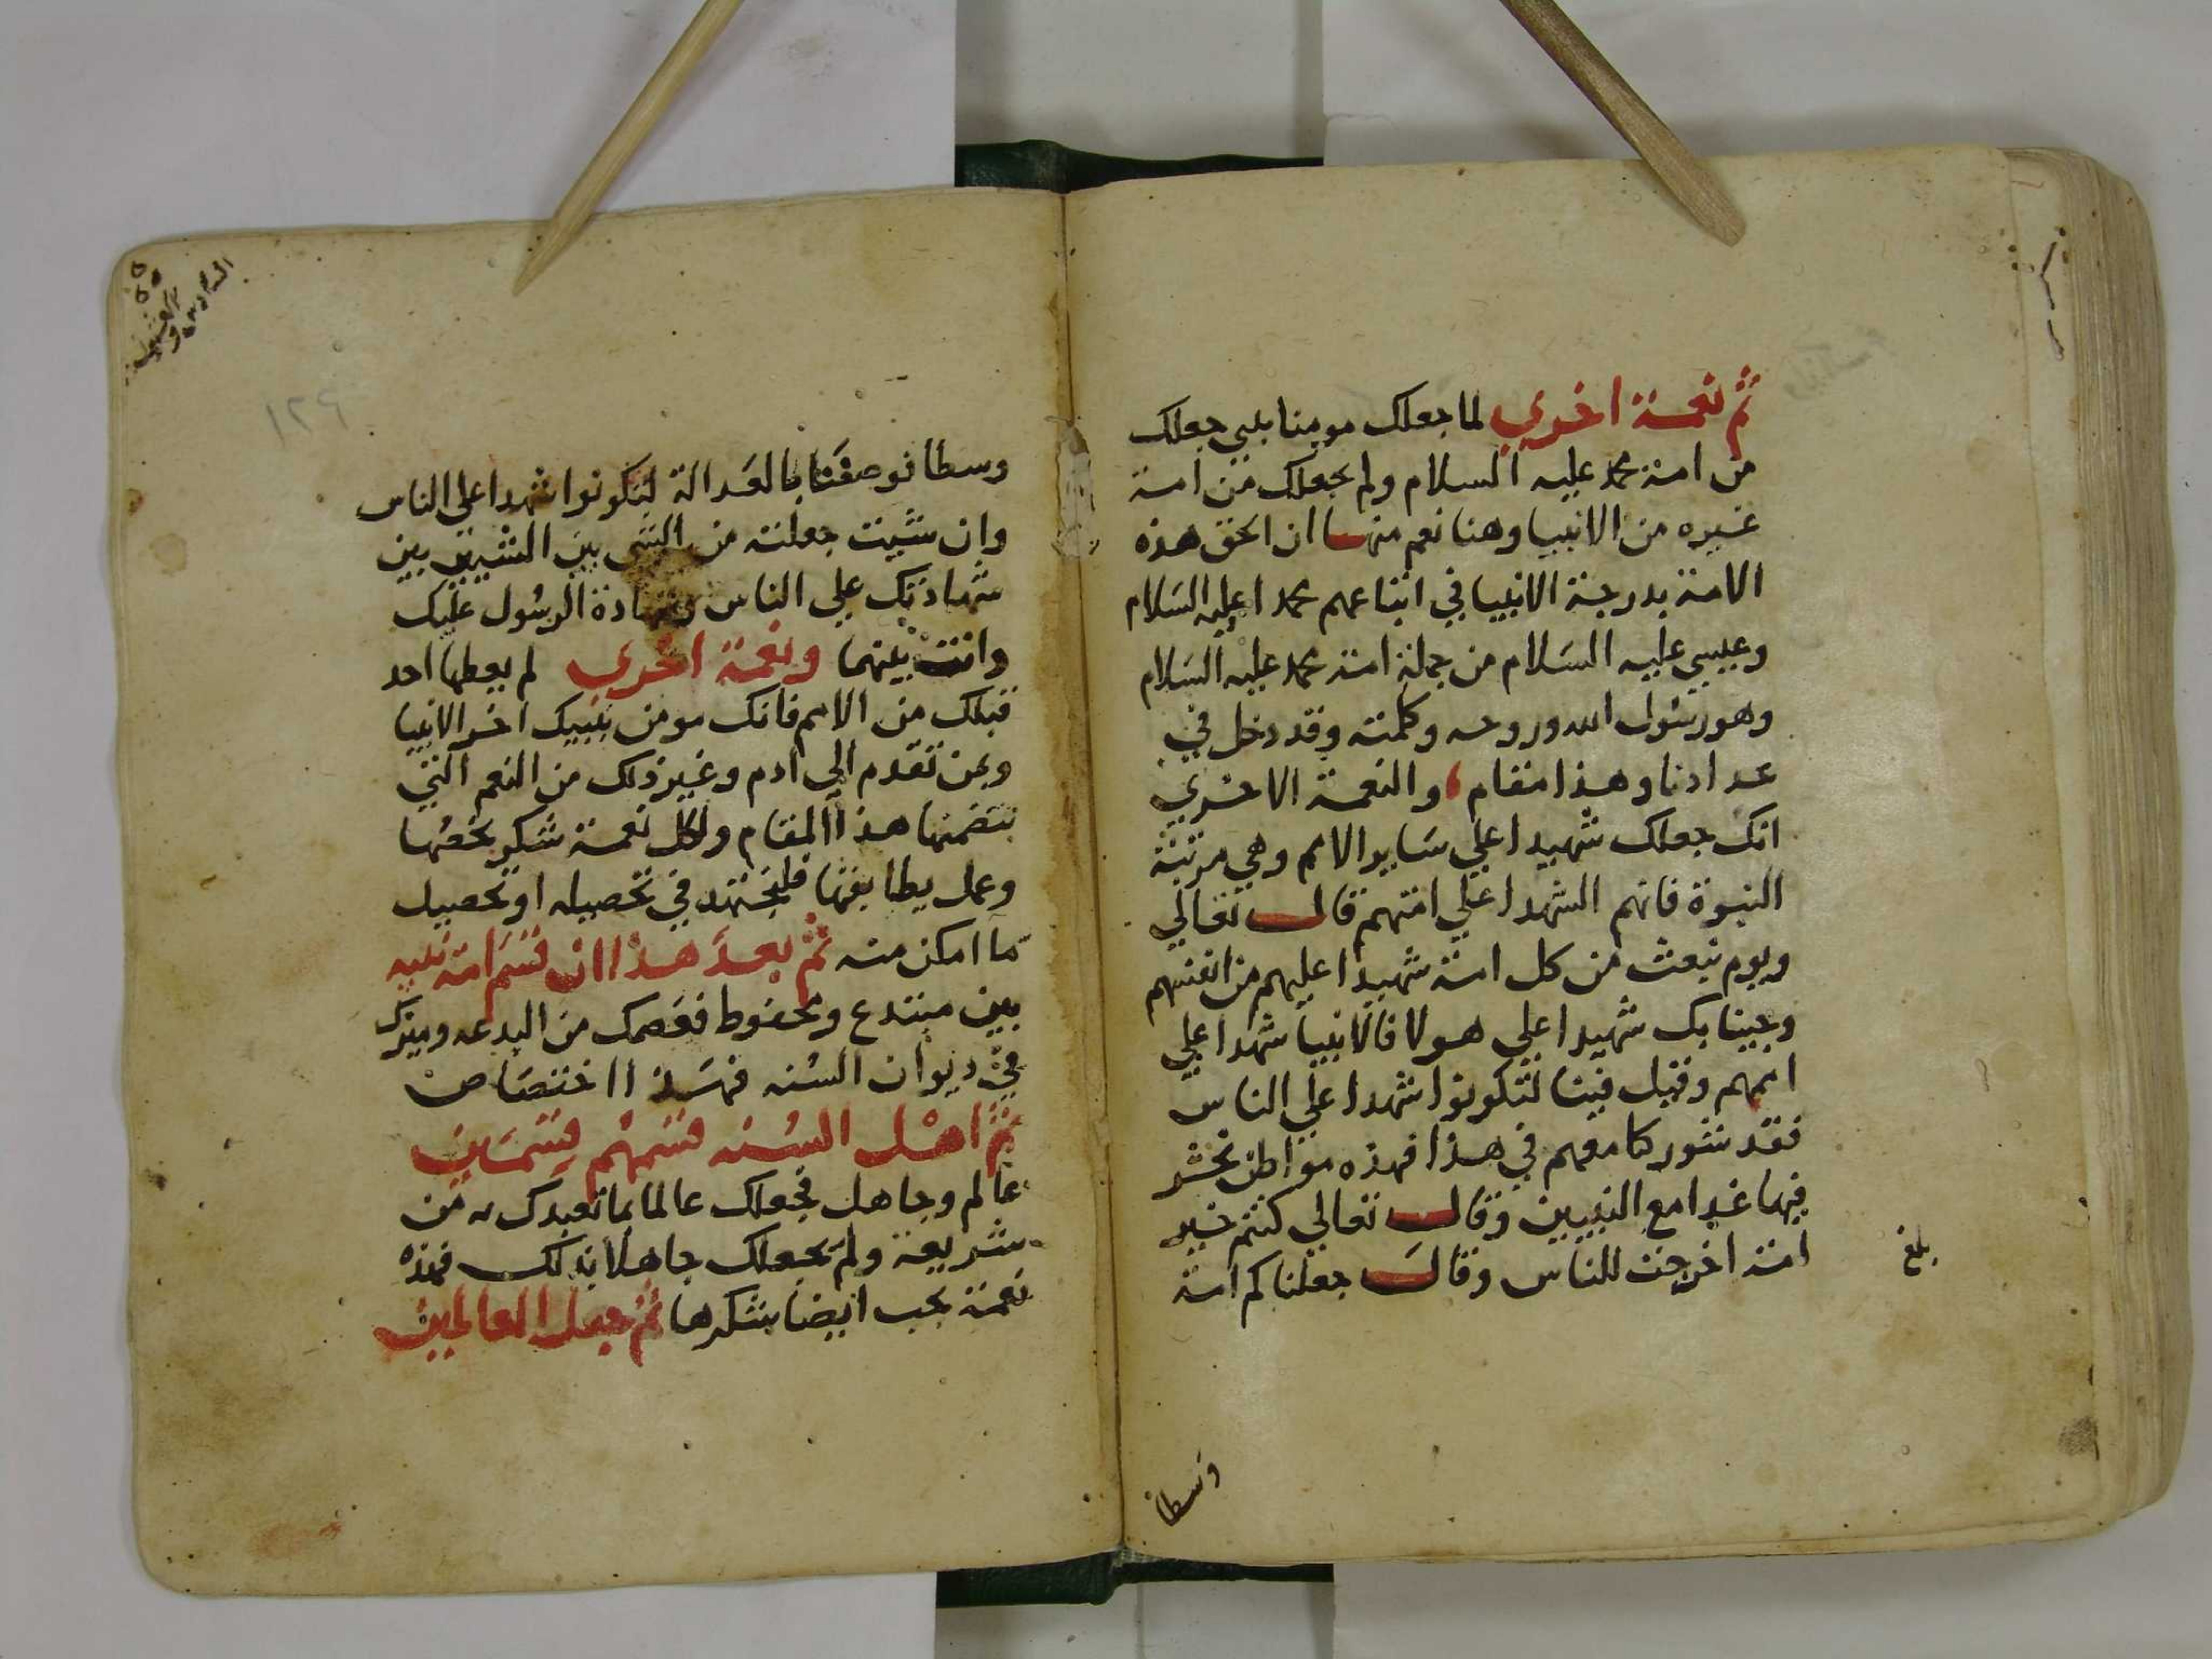 ثم نعمة اخري لما جعلك مومنا بنبي جعلك
من امة محمد عليه السلام ولم يجعلك من امة
غيره من الانبيا وهنا نعم منها ان الحق هذه
الامة بدرجة الانبيا في اتباعهم محمدا عليه السلام
وعيسي عليه السلام من جملة امة محمد عليه السلام
وهو رسول الله وروحه وكلمته وقد دخل في
عدادنا وهذا مقام، والنعمة الاخري
انك جعلك شهيدا علي ساير الامم وهي مرتبة
النبوة فانهم الشهدا علي امتهم قال تعالي
ويوم نبعث من كل امة شهيدا عليهم من انفسهم
وجينا بك شهيدا علي هولا فالانبيا شهدا علي
اممهم وقيل فينا لتكونوا شهدا علي الناس
فقد شوركنا معهم في هذا فهذه مواطن نحشر
فيها غدا مع النبيين وقال تعالي كنتم خير
امة اخرجت للناس وقال جعلناكم امة
بلغ
وسطا
السادس والعشرين
١٢٩
وسطا فوصفنا بالعدالة لتكونوا شهدا علي الناس
وان شيت جعلته من الشي بين الشيين بين
شهادتك علي الناس وشهادة الرسول عليك
وانت بينهما ونعمة اخري لم يعطها احد
قبلك من الامم فانك مومن بنبيك اخر الانبيا
وبمن تقدم الي ادم وغير ذلك من النعم التي
يتضمنها هذا المقام ولكل نعمة شكر يخصها
وعمل يطابقها فليجتهد في تحصيله او تحصيل
ما امكن منه ثم بعد هذا ان قسم امة نبيه
بين مبتدع ومحفوظ فعصمك من البدعه وميزك
في ديوان السنه فهذا اختصاص
ثم اهل السنه قسمهم قسمين
عالم وجاهل فجعلك عالما بما تعبدك به من
شريعة ولم يجعلك جاهلا بذلك فهذه
نعمة يجب ايضا شكرها ثم جعل العالمين